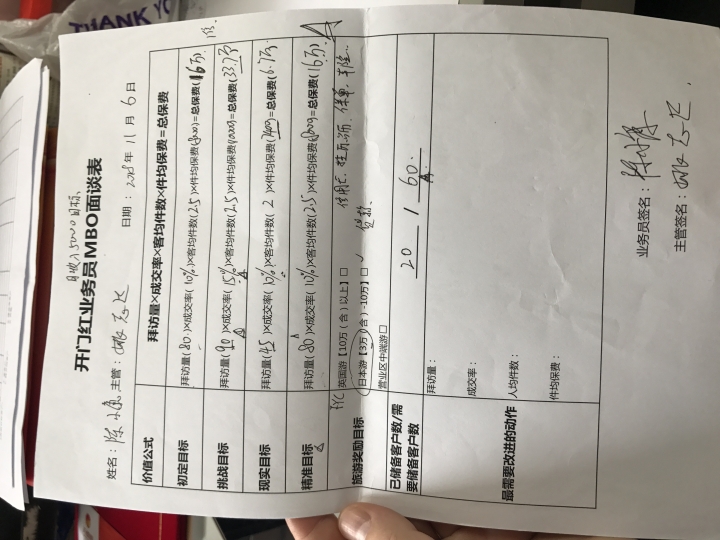 THANK YO
月收入5000目标、
开门红业务员MBO面谈表
姓名： 陈 主管： 日期：2018年 11月 6日
价值公式 拜访量×成交率×客均件数×件均保费＝总保费
初定目标 拜访量(80)×成交率(10%)×客均件数(2.5)×件均保费(8000)＝总保费(16万)
挑战目标 拜访量(90)×成交率(15%)×客均件数(2.5)×件均保费(10000)＝总保费(33.7万)
现实目标 拜访量(45)×成交率(10%)×客均件数(2)×件均保费(7400)＝总保费(6.7万)
精准目标 拜访量(80)×成交率(10%)×客均件数(2.5)×件均保费(8000)＝总保费(16万)
旅游奖励目标 英国游【10万（含）以上】□
日本游【3万（含）-10万】□ ✓
营业区中端游□
信用卡、 保单、车险、
贷款、
已储备客户数/需要储备客户数 20 / 60.
最需要改进的动作 拜访量：
成交率：
人均件数：
件均保费：
业务员签名：
主管签名：